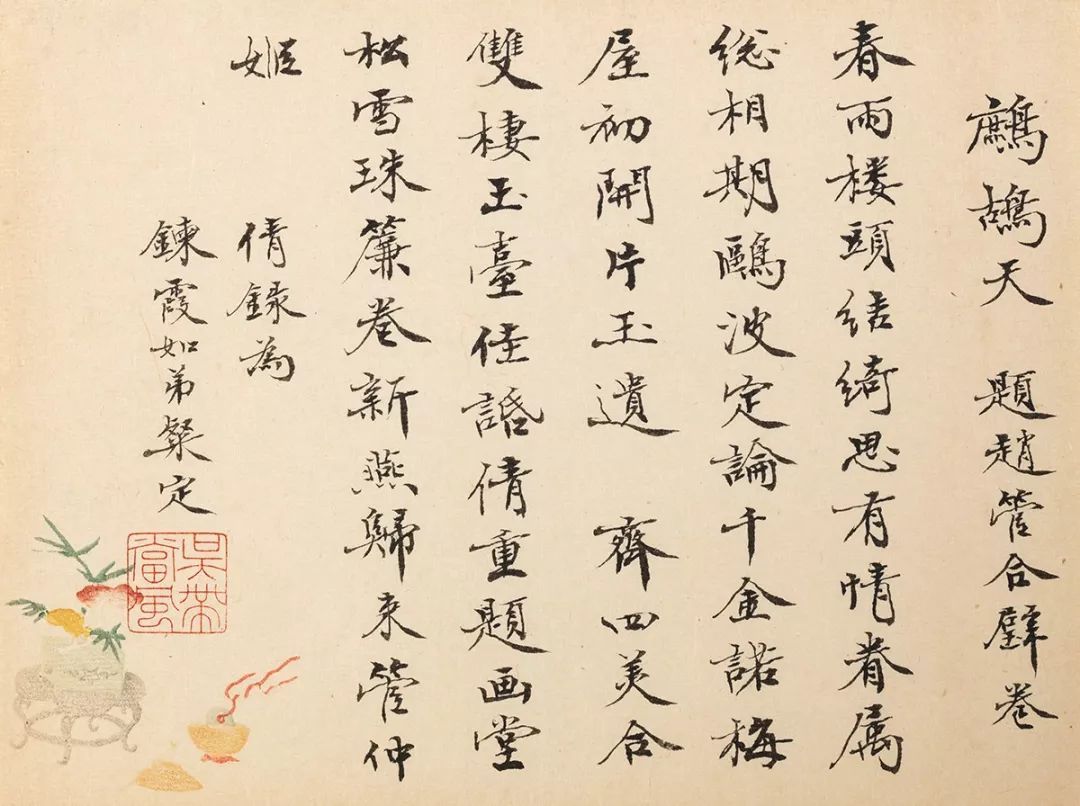 鷓鴣天　題趙管合璧卷
春雨楼頭结綺思有情眷属
総相期鷗波定論千金諾梅
屋初開片玉遺　齊四美合
雙棲玉臺佳話倩重題画堂
松雪珠簾卷新燕歸来管仲
姬
倩録為
鍊霞如弟粲定
吳帶當風